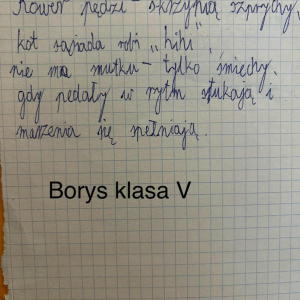 Rower pędzi – skrzypią szprychy,
kot sąsiada robi „hihi”,
nie ma smutku – tylko śmiechy,
gdy pedały w rytm stukają i
marzenia się spełniają.
Borys klasa V